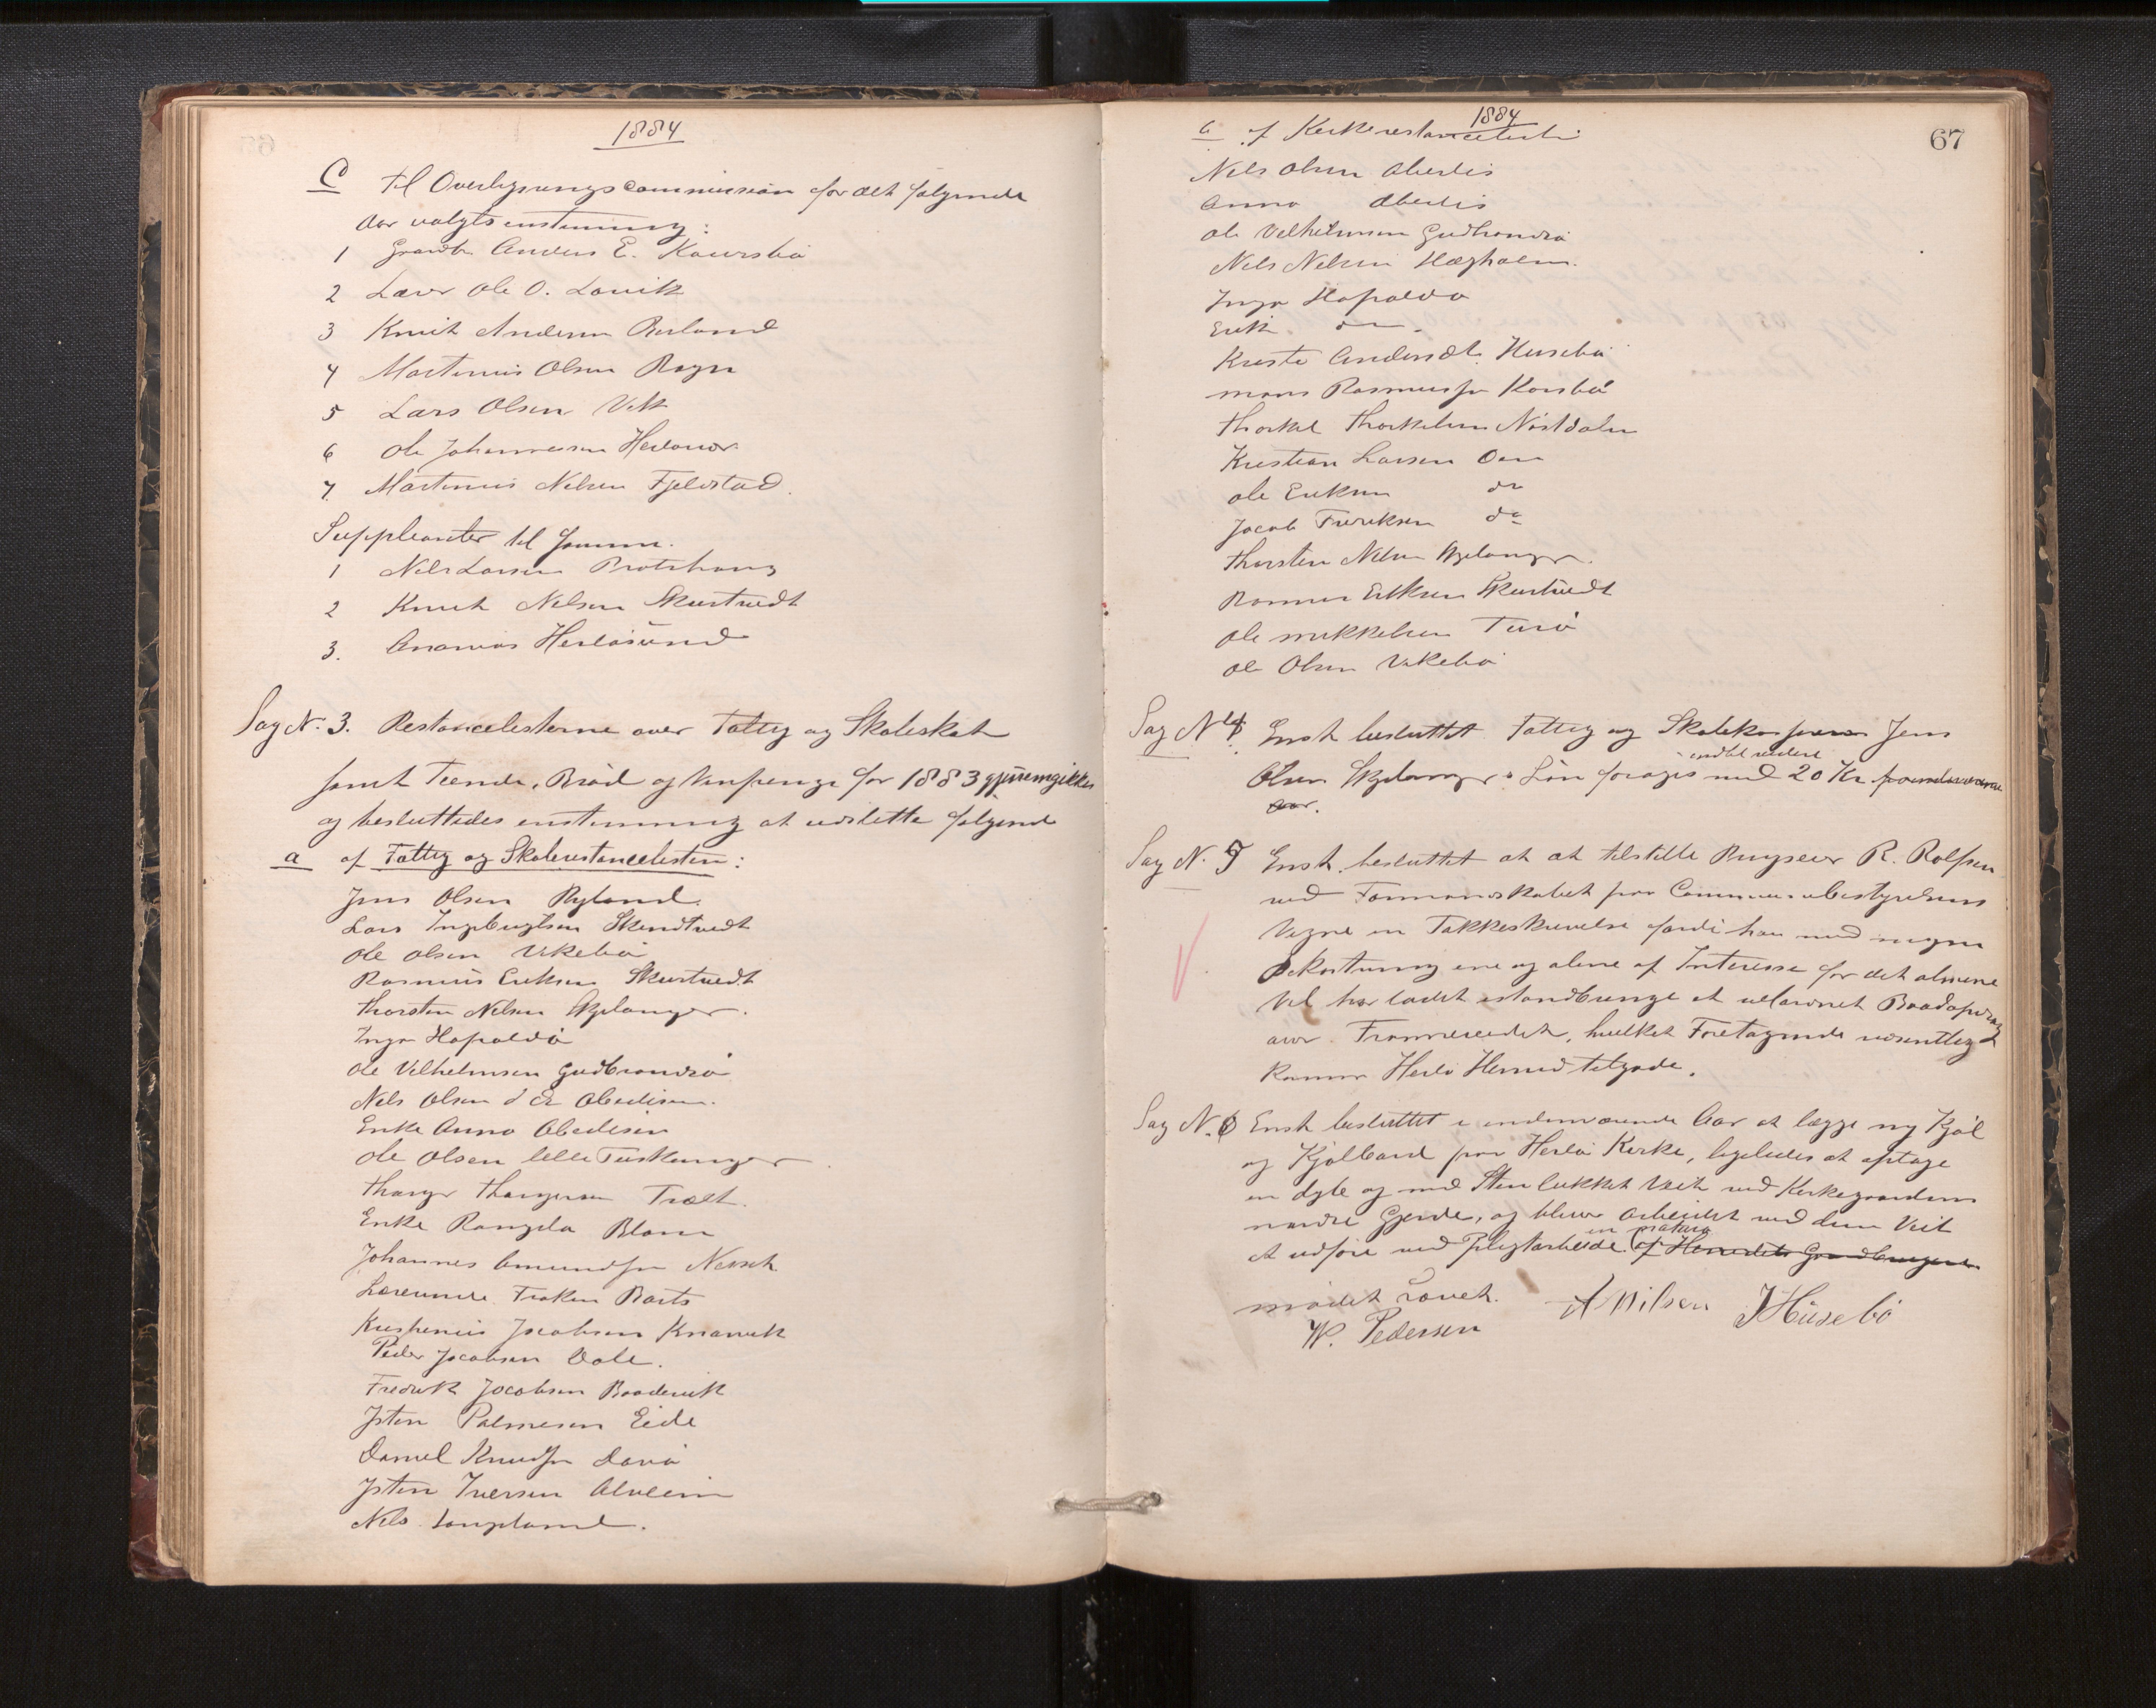 1884
C Til Overligningscommission for det følgende
Aar valgts enstemmig:
1 Gaardbr. Anders E. Kaursbø
2 Lærer Ole O. Lavik
3 Knut Andersen Berland
4 Martinus Olsen Røgn
5 Lars Olsen Vik
6 Ole Johannessen Herlaver
7. Martinus Nelsen Fjeldstad.
Suppleanter til samme.
1 Nils Larsen Protshaug
2 Knut Nelsen Skurtvedt
3. Ananias Herløsund
Sag N. 3. Restancelisterne over Fattig og Skoleskat
samt Tiende, Brød og Vinpenge for 1883 gjennemgikkes
og besluttedes enstemmig at udslette følgende
a af Fattig og Skolerestancelisten:
Jens Olsen Ryland.
Lars Ingebrigtsen Skurdtvedt
Ole Olsen Vikebø
Rasmus Eriksen Skurtvedt
Thorsten Nelsen Skjelanger.
Inga Hopaldø
Ole Vilhelmsen Gudbrandsø
Nels Olsen Abedisen.
Enke Anna Abedisen
Ole Olsen Lille Turkanger.
Thorger Thorgersen Træt.
Enke Rangela Blom
Johannes Amundsen Nessek
Lærerinde Frøken Barts
Krispinus Jacobsen Knarvik
Peder Jacobsen Dale.
Fredrik Jacobsen Baadevik
Isten Palmesen Eide
Daniel Knudsen Davø
Isten Iversen Alveim
Nels Langeland.
1884
67
b af Kirkerestancelisten
Nels Olsen Abedis
Anna Abedis
Ole Velhelmsen Gudbrandsø
Nels Nelsen Hægholm.
Inga Hopaldø
Erik do.
Kriste Andersdt. Husebø
Mons Rasmussen Korsbø
Thorkel Thorkelsen Nistdalen
Kristian Larsen Oen
Ole Eriksen do
Jacob Fredriksen do
Thorsten Nelsen Skjelanger.
Rasmus Eriksen Skurtvedt
Ole Mikkelsen Turø
Ole Olsen Vikebø
Sag N. 4 Enst. besluttet Fattig og Skolekasserer Jens
indtil videre
Olsen Skjelangers Løn forøges med 20 Kr for indeværende
Aar.
Sag N. 5 Enst. besluttet at at tilstille Brugseier R. Rolfsen
ved Formandskabet paa Communebestyrelsens
Vegne en Takkeskrivelse fordi han med megen
Bekostning ene og alene af Interesse for det almene
Vel har ladet istandbringe et velordnet Baadopdrag
over Frommereidet, hvilket Foretagende væsentlig
kommer Herlø Herred tilgode.
Sag N. 6 Enst. besluttet i indeværende Aar at lægge ny Kjøl
og Kjølbord paa Herlø Kirke, ligeledes at optage
en dyb og med Sten lukket Veit ved Kirkegaardens
nordre Gjerde, og bliver Arbeidet med den Veit
in natura
at udføre ved Pligtarbeide af Herredets Gaardbrugere
mødet hævet.
W. Pedersen A Nilsen J Husebø